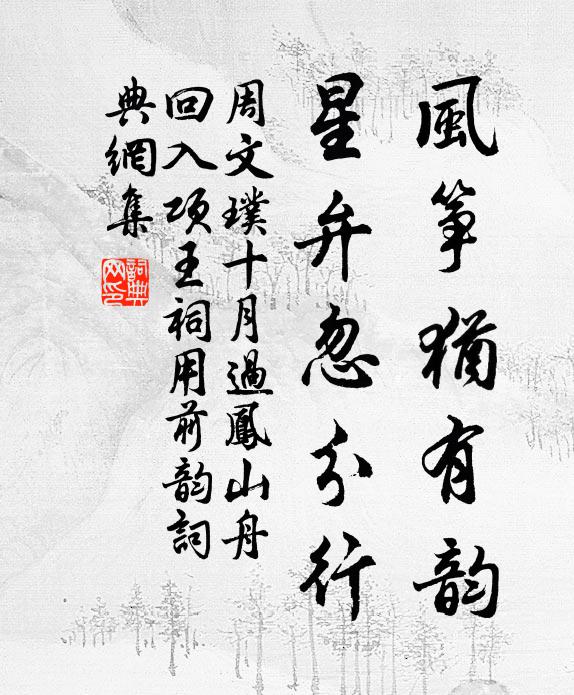 風箏猶有韵
星弁忽分行
周文璞十月過鳳山舟
回入項王祠用前韵詞
典網集
詞典網印